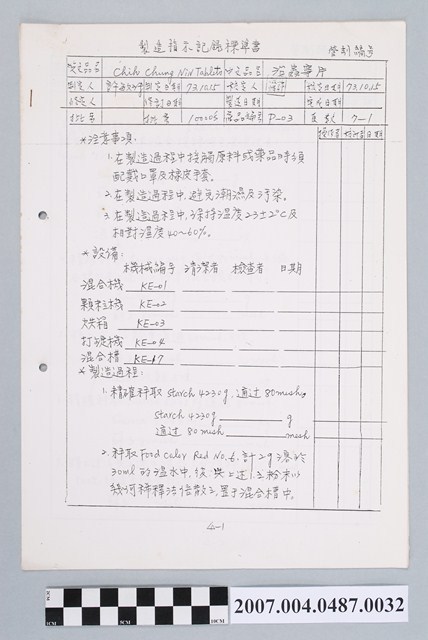 製造指示記錄標準書
管制編號
英文品名 Chih Chung Nin Tablets 中文品名 治蟲寧片
制定人 制定日期 73.10.15 核定人 核定日期 73.10.15
修定人 修訂日期 製造日期 完成日期
批號 批量 藥品編號 P-03 頁數 7-1
操作者 核對者 日期
*注意事項:
1.在製造過程中接觸原料或藥品時須
配戴口罩及橡皮手套。
2.在製造過程中,避免潮濕及污染。
3.在製造過程中,保持溫度23±2°C及
相對溼度40~60%。
*設備:
機械編號 清潔者 檢查者 日期
混合機 KE-01
顆粒機 KE-02
烘箱 KE-03
打錠機 KE-04
混合槽 KE-17
*製造過程:
1.精確秤取 starch 4230g,通过 80mesh。
starch 4230g g
通过 80mesh mesh
2.秤取 Food Color Red No.6,計2g溶於
30ml的溫水中,後,與上述1.之粉末以
幾何稀釋法倍散之,置于混合槽中。
4-1
1CM 5CM 10CM
2007.004.0487.0032